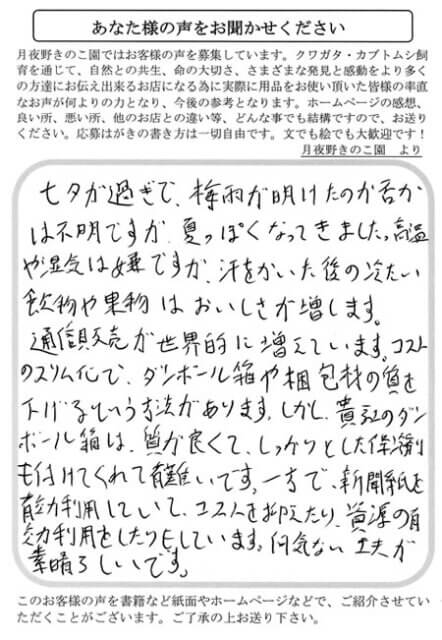 あなた様の声をお聞かせください
月夜野きのこ園ではお客様の声を募集しています。クワガタ・カブトムシ飼
育を通じて、自然との共生、命の大切さ、さまざまな発見と感動をより多く
の方達にお伝え出来るお店になる為に実際に用品をお使い頂いた皆様の率直
なお声が何よりの力となり、今後の参考となります。ホームページの感想、
良い所、悪い所、他のお店との違い等、どんな事でも結構ですので、お送り
ください。応募はがきの書き方は一切自由です。文でも絵でも大歓迎です！
月夜野きのこ園 より
七夕が過ぎて、梅雨が明けたのか否か
は不明ですが、夏っぽくなってきました。高温
や湿気は嫌ですが、汗をかいた後の冷たい
飲物や果物はおいしさが増します。
通信販売が世界的に増えています。コスト
のスリム化で、ダンボール箱や梱包材の質を
下げるという方法があります。しかし、貴社のダン
ボール箱は、質が良くて、しっかりとした
も付けてくれて有難いです。一方で、新聞紙を
有効利用していて、コストを抑えたり、資源の有
効利用をしたりとしています。何気ない工夫が
素晴らしいです。
このお客様の声を書籍など紙面やホームページなどで、ご紹介させてい
ただくことがございます。ご了承の上お送り下さい。